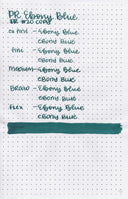 PR Ebony Blue
PR #20 COPY
EX FINE - Ebony Blue
Ebony Blue
FINE - Ebony Blue
Ebony Blue
MEDIUM - Ebony Blue
Ebony Blue
BROAD - Ebony Blue
Ebony Blue
FLEX - Ebony Blue
Ebony Blue